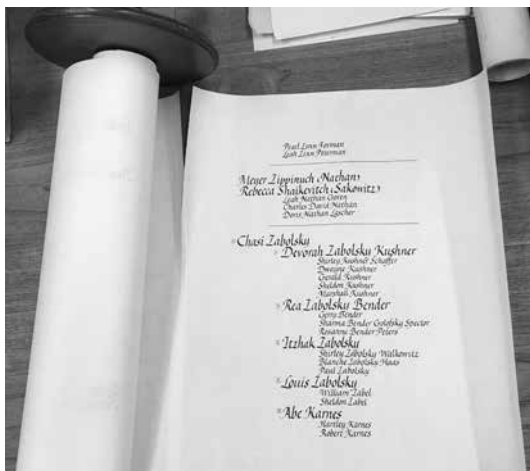 Pearl Linn Forman
Leah Linn Peterman
Meyer Zippinuch (Nathan)
Rebecca Shaikevitch (Sakowitz)
Leah Nathan Goren
Charles David Nathan
Doris Nathan Lascher
Chasi Zabolsky
Devorah Zabolsky Kushner
Shirley Kushner Schaffer
Dwayne Kushner
Gerald Kushner
Sheldon Kushner
Marshall Kushner
Rea Zabolsky Bender
Gerry Bender
Sharma Bender Golofsky Spector
Rosanne Bender Peters
Itzhak Zabolsky
Shirley Zabolsky Walkowitz
Blanche Zabolsky Haas
Paul Zabolsky
Louis Zabolsky
William Zabel
Sheldon Zabel
Abe Karnes
Hartley Karnes
Robert Karnes